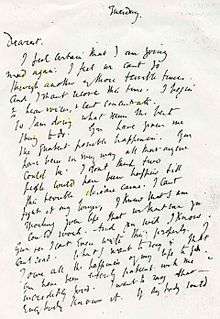 Tuesday.
Dearest,
I feel certain that I am going
mad again. I feel we can't go
through another of those terrible times.
And I shan't recover this time. I begin
to hear voices, & can't concentrate.
So I am doing what seems the best
thing to do. You have given me
the greatest possible happiness. You
have been in every way all that anyone
could be. I don't think two
people could have been happier till
this terrible disease came. I can't
fight it any longer, I know that I am
spoiling your life, that without me you
could work. And you will I know.
You see I can't even write this properly. I
can't read. What I want to say is that
I owe all the happiness of my life to you.
You have been entirely patient with me &
incredibly good. I want to say that —
everybody knows it. If anybody could